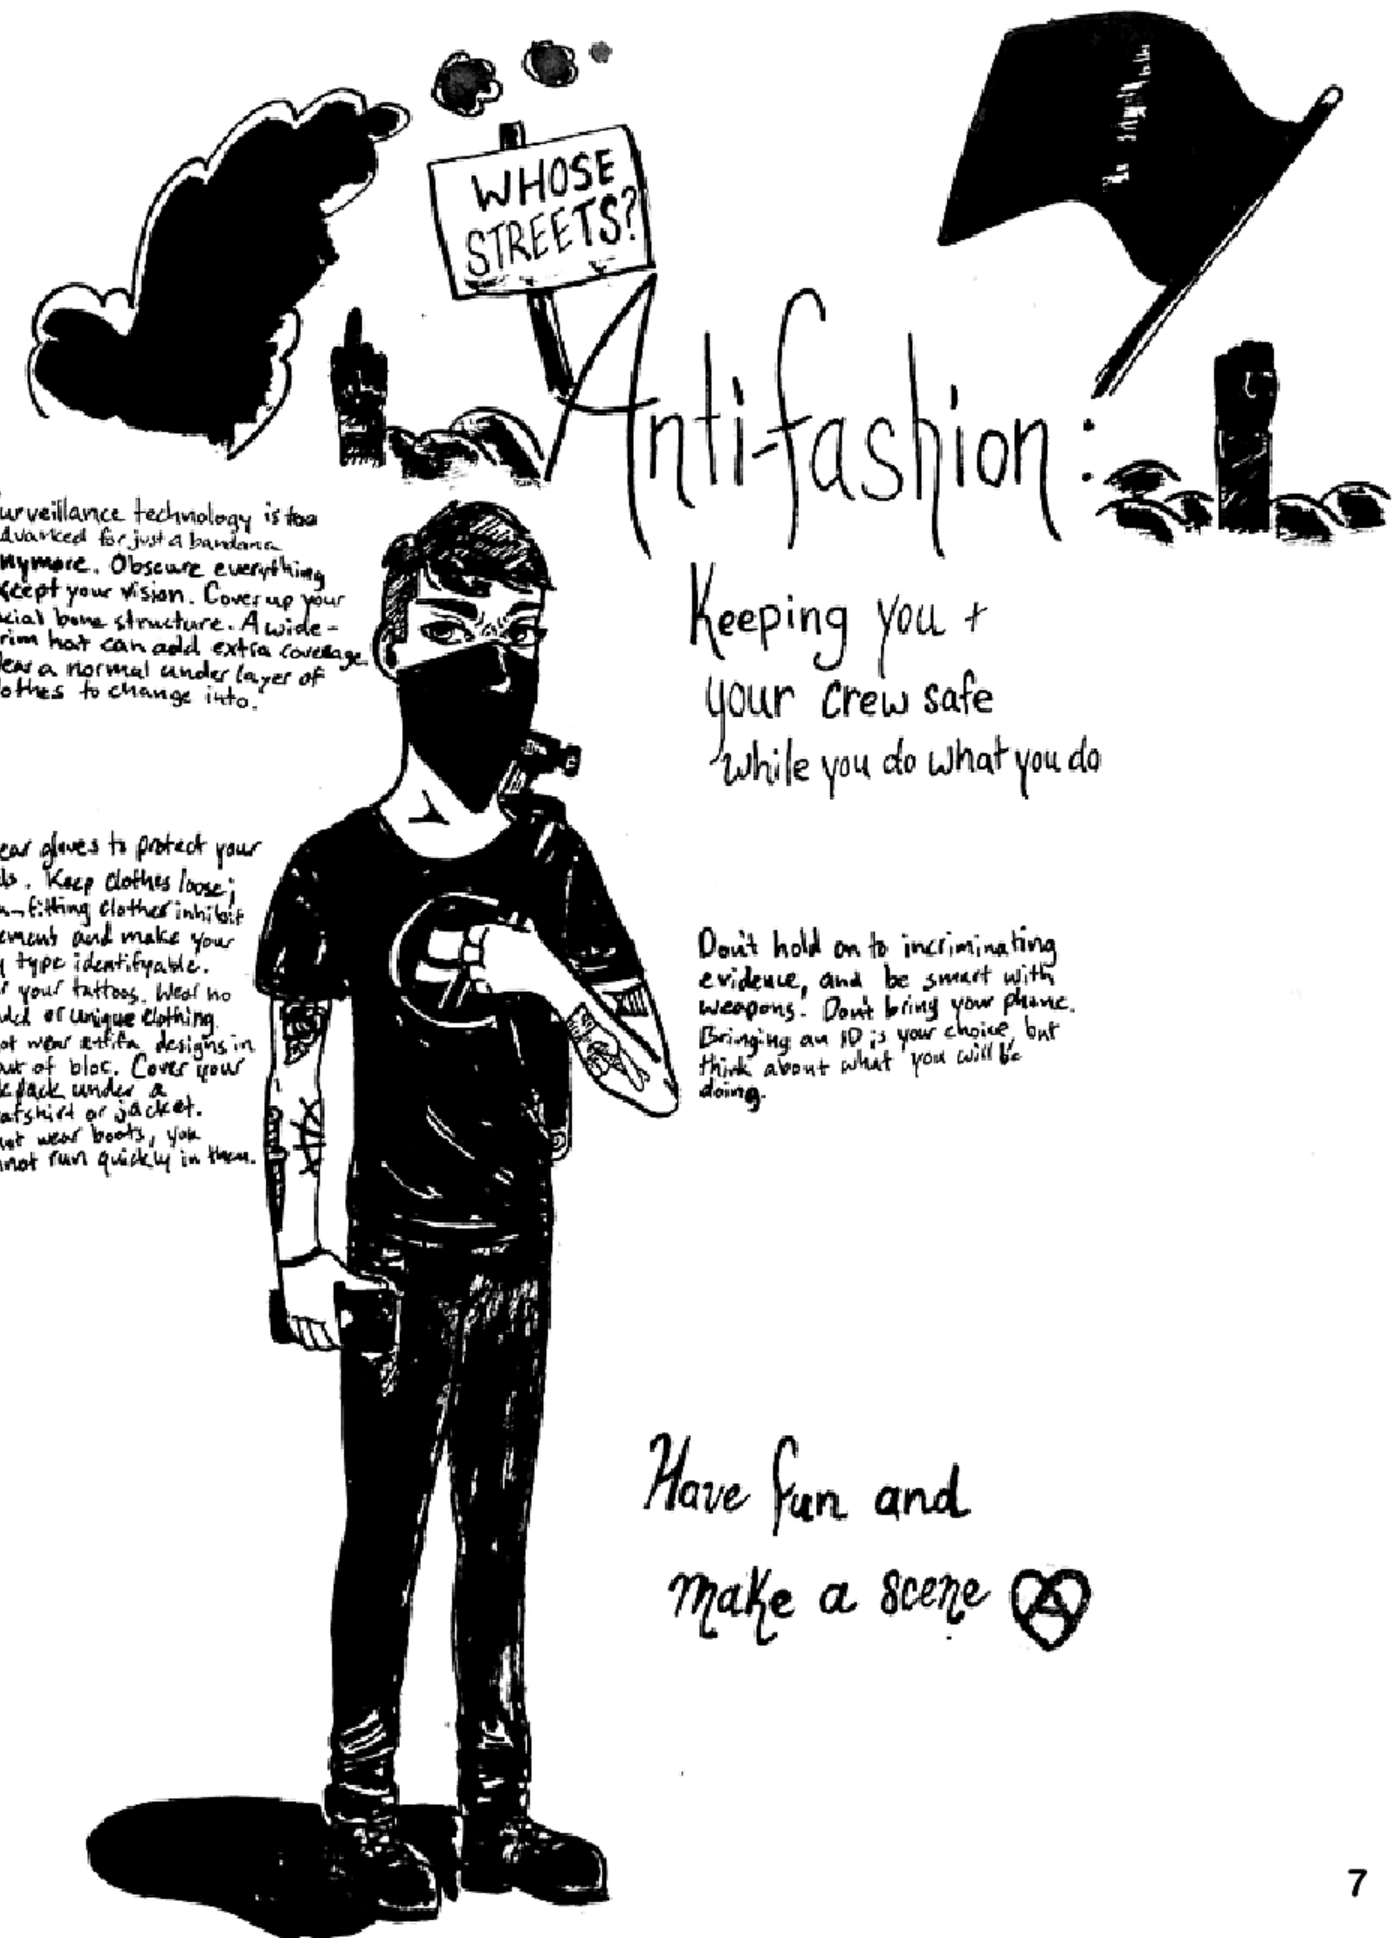 WHOSE
STREETS?
Anti-fashion:
Keeping you +
your crew safe
while you do what you do
urveillance technology is too
dvanced for just a bandana
nymore. Obscure everything
xcept your vision. Cover up your
cial bone structure. A wide-
rim hat can add extra coverage
ear a normal under layer of
lothes to change into.
ear gloves to protect your
ds. Keep clothes loose;
-fitting clothes inhibit
ement and make your
y type identifyable.
r your tattoos. Wear no
nded or unique clothing
ot wear antifa designs in
out of bloc. Cover your
kpack under a
eatshirt or jacket.
not wear boots, you
nnot run quickly in them.
Don't hold on to incriminating
evidence, and be smart with
weapons! Don't bring your phone.
Bringing an ID is your choice, but
think about what you will be
doing.
Have fun and
make a scene
7